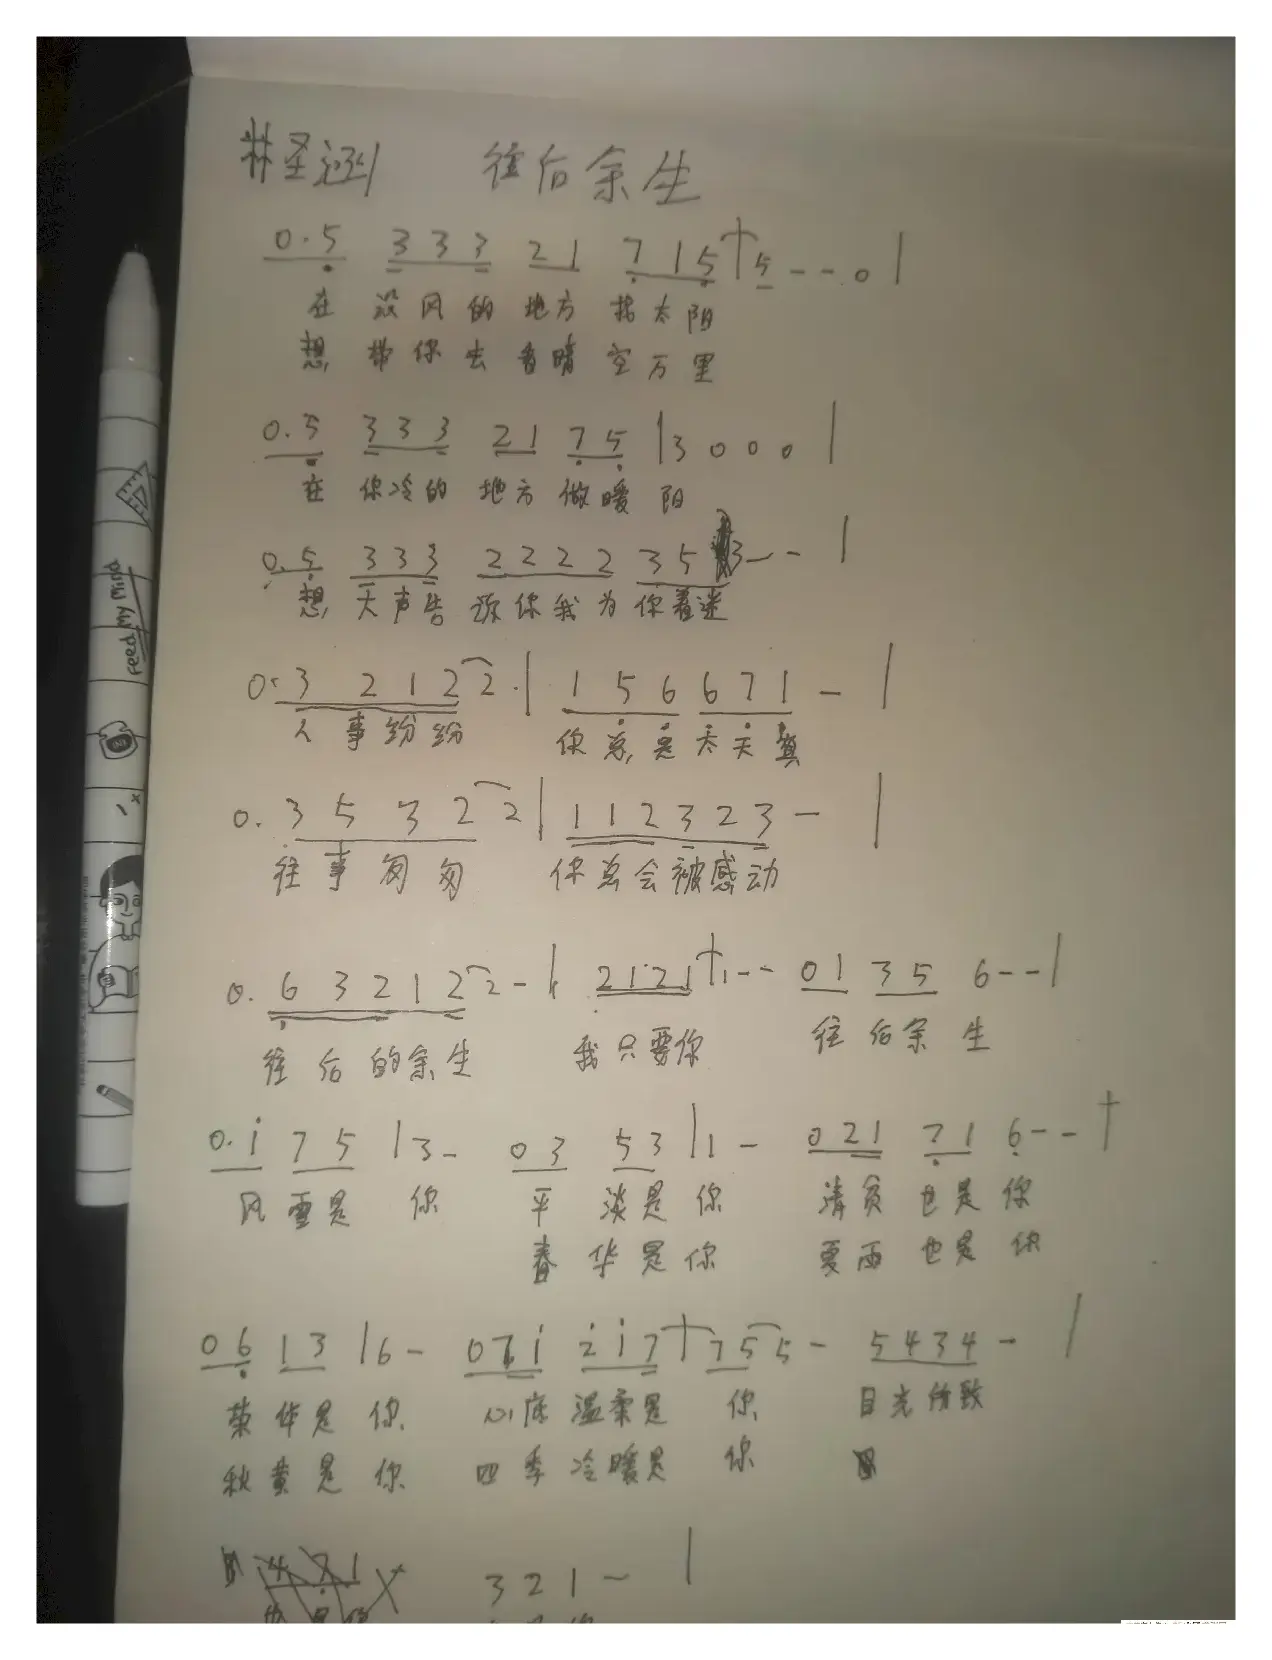 林圣涵 往后余生
0.5 333 21 715 | 5 - - 0 |
在 没风的 地方 找太阳
想 带你去 看晴空万里
0.5 333 21 75 | 3 0 0 0 |
在 你冷的 地方 做暖 阳
0.5 333 2222 35 3 - - |
想 大声告 诉你我为 你着迷
0. 3 2 1 2 2 . | 1 5 6 6 7 1 - |
人事纷纷 你总是太天真
0. 3 5 3 2 2 | 1 1 2 3 2 3 - |
往事匆匆 你总会被感动
0. 6 3 2 1 2 2 - | 2121 | 1 - - 01 35 6 - - |
往后的余生 我只要你 往后余生
0.1 75 | 3 - 03 53 | 1 - 021 71 6 - - |
风雪是 你 平 淡是 你 清贫 也是 你
春 华是 你 夏雨 也是 你
06 13 | 6 - 071 217 | 75 5 - 5434 - |
荣华是 你 心底 温柔是 你 目光所致
秋黄是 你 四季 冷暖是 你
321 - |
feed my mind